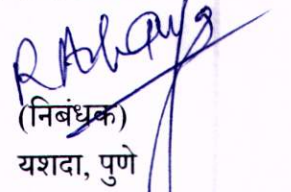 (निबंधक)
यशदा, पुणे